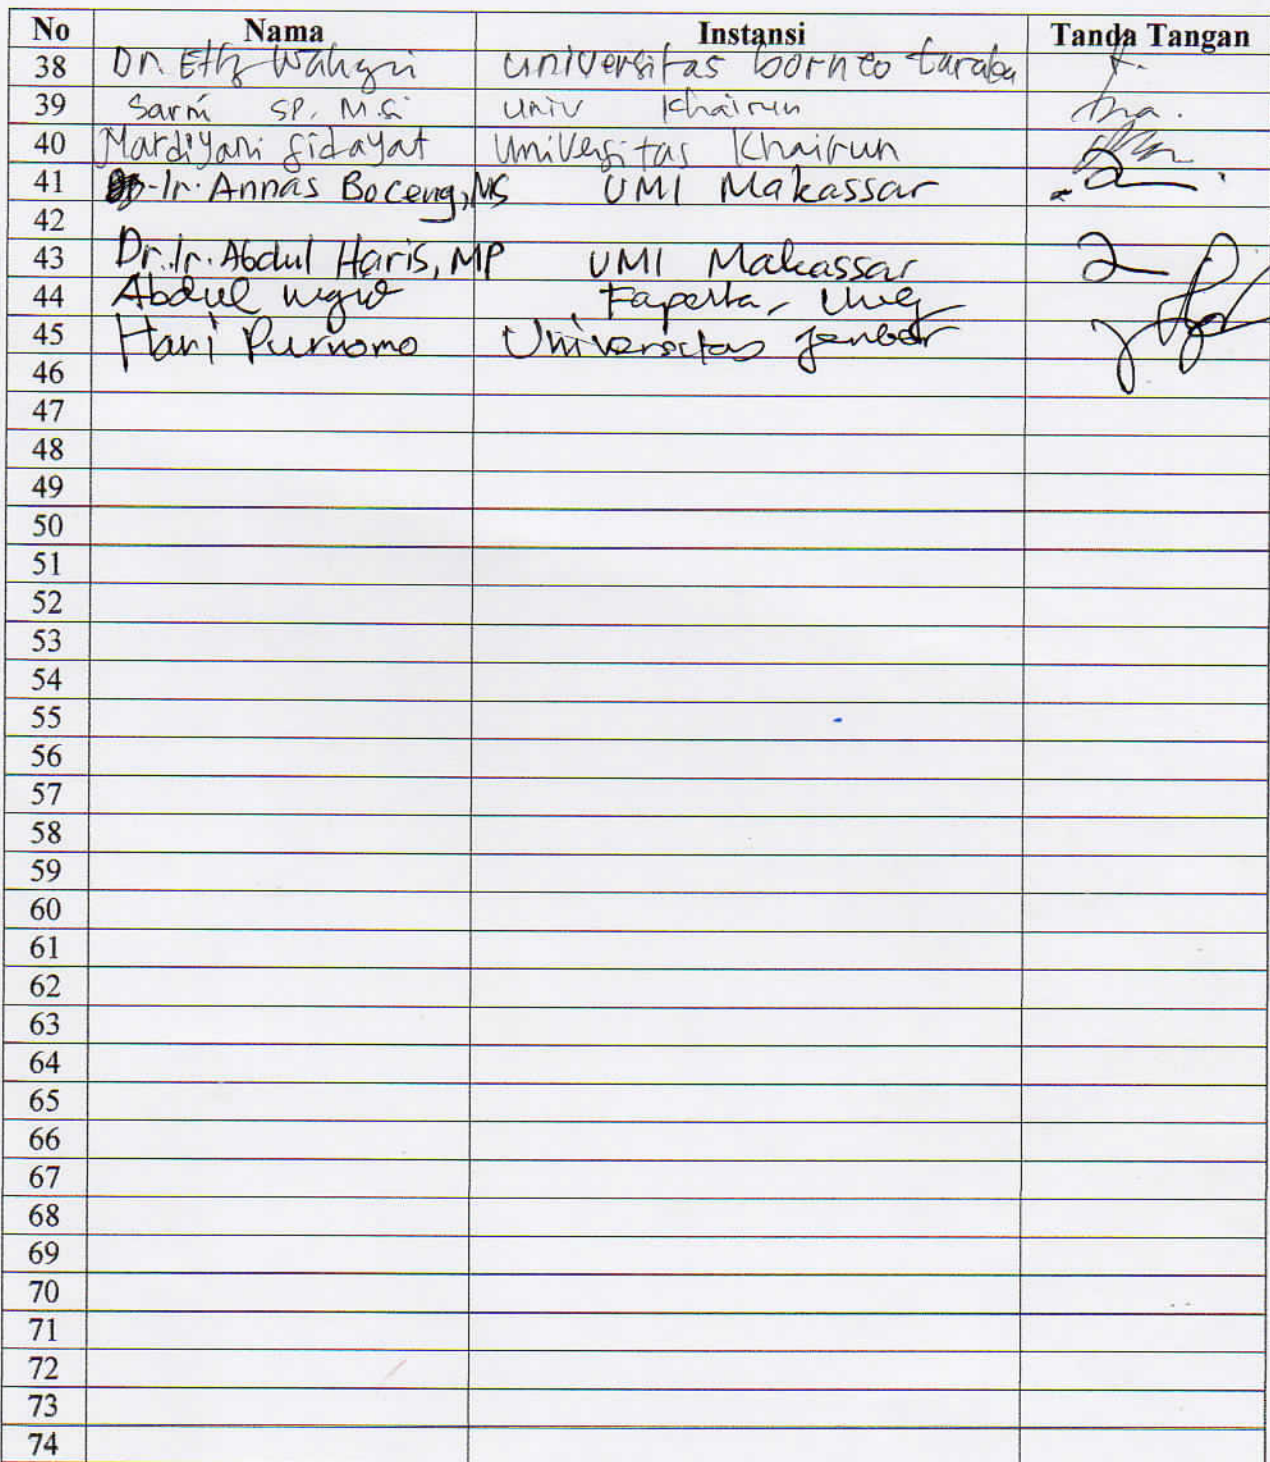 No Nama Instansi Tanda Tangan
38 Dr. Etty Wahyuni universitas borneo taraka
39 Sarni SP, M.Si Univ Khairun
40 Mardiyani Sidayat Universitas Khairun
41 Ir. Annas Boceng, MS UMI Makassar
42
43 Dr. Ir. Abdul Haris, MP UMI Makassar
44 Abdul Faperta,
45 Hari Purnomo Universitas Jember
46
47
48
49
50
51
52
53
54
55
56
57
58
59
60
61
62
63
64
65
66
67
68
69
70
71
72
73
74